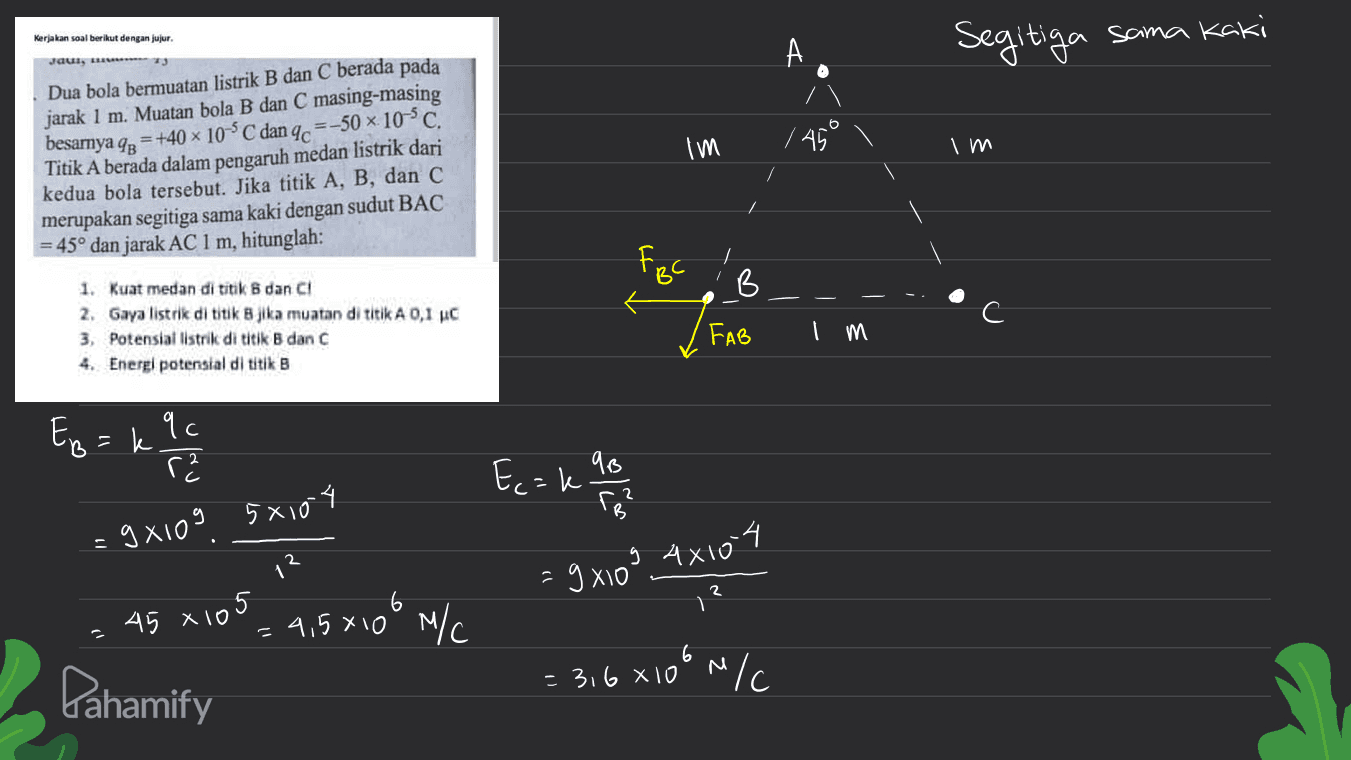 Kerjakan soal berikut dengan jujur.
Dua bola bermuatan listrik B dan C berada pada
jarak 1 m. Muatan bola B dan C masing-masing
besarnya q_B = +40 × 10⁻⁵ C dan q_C = –50 × 10⁻⁵ C.
Titik A berada dalam pengaruh medan listrik dari
kedua bola tersebut. Jika titik A, B, dan C
merupakan segitiga sama kaki dengan sudut BAC
= 45° dan jarak AC 1 m, hitunglah:
1. Kuat medan di titik B dan C!
2. Gaya listrik di titik B jika muatan di titik A 0,1 μC
3. Potensial listrik di titik B dan C
4. Energi potensial di titik B
Segitiga sama kaki
A
45°
1m
1m
F_BC
B
C
F_AB
1 m
E_B = k q_C / r_C²
= 9×10⁹ . 5×10⁻⁴ / 1²
= 45 ×10⁵ = 4,5 ×10⁶ N/C
E_C = k q_B / r_B²
= 9×10⁹ . 4×10⁻⁴ / 1²
= 3,6 ×10⁶ N/C
Pahamify